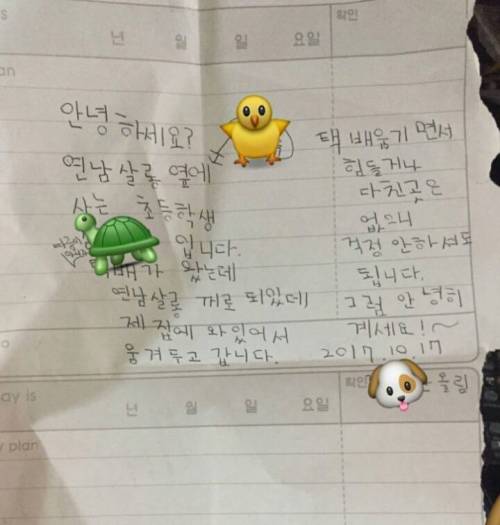 s
년 월 일 요일
확인
an
안녕하세요?
연남살롱 옆에
사는 초등학생
입니다.
배가 왔는데
연남살롱 꺼로 되있데
제 집에 와있어서
움겨두고 갑니다.
택배움기면서
힘들거나
다친곳은
없으니
걱정 안하셔도
됩니다.
그럼 안녕히
계세요!~
2017.10.17
올림
o
ay is
년 월 일 요일
확인
y plan